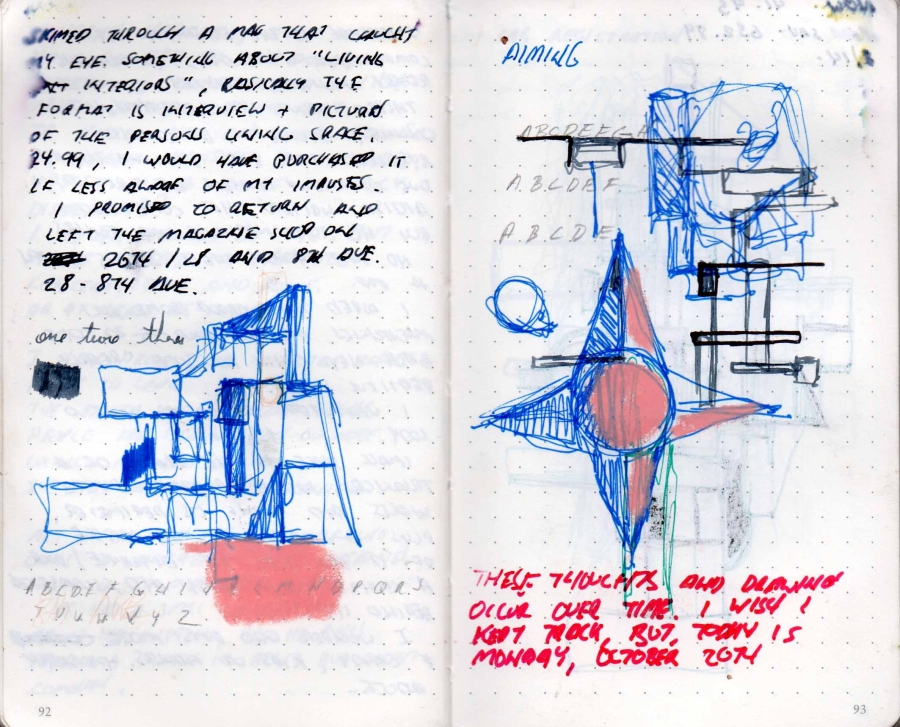 SKIMED THROUGH A MAG THAT CAUGHT
MY EYE SOMETHING ABOUT "LIVING
INTERIORS", BASICALY THE
FORMAT IS INTERVIEW + PICTURN
OF THE PERSONS LIVING SPACE.
24.99, I WOULD HAVE PURCHASED IT
IF LESS AWARE OF MY IMPULSES.
I PROMISED TO RETURN AND
LEFT THE MAGAZINE SHOP ON
26TH / 28 AND 8TH AVE.
28 - 8TH AVE.
one two three
A B C D E F G H I J K L M N O P Q R S
T U V W X Y Z
92
AIMING
A B C D E F G H
A. B. C. D E F
A. B. C. D. E.
THESE THOUGHTS AND DRAWINGS
OCCUR OVER TIME. I WISH I
KEPT TRACK, BUT, TODAY IS
MONDAY, OCTOBER 26TH
93